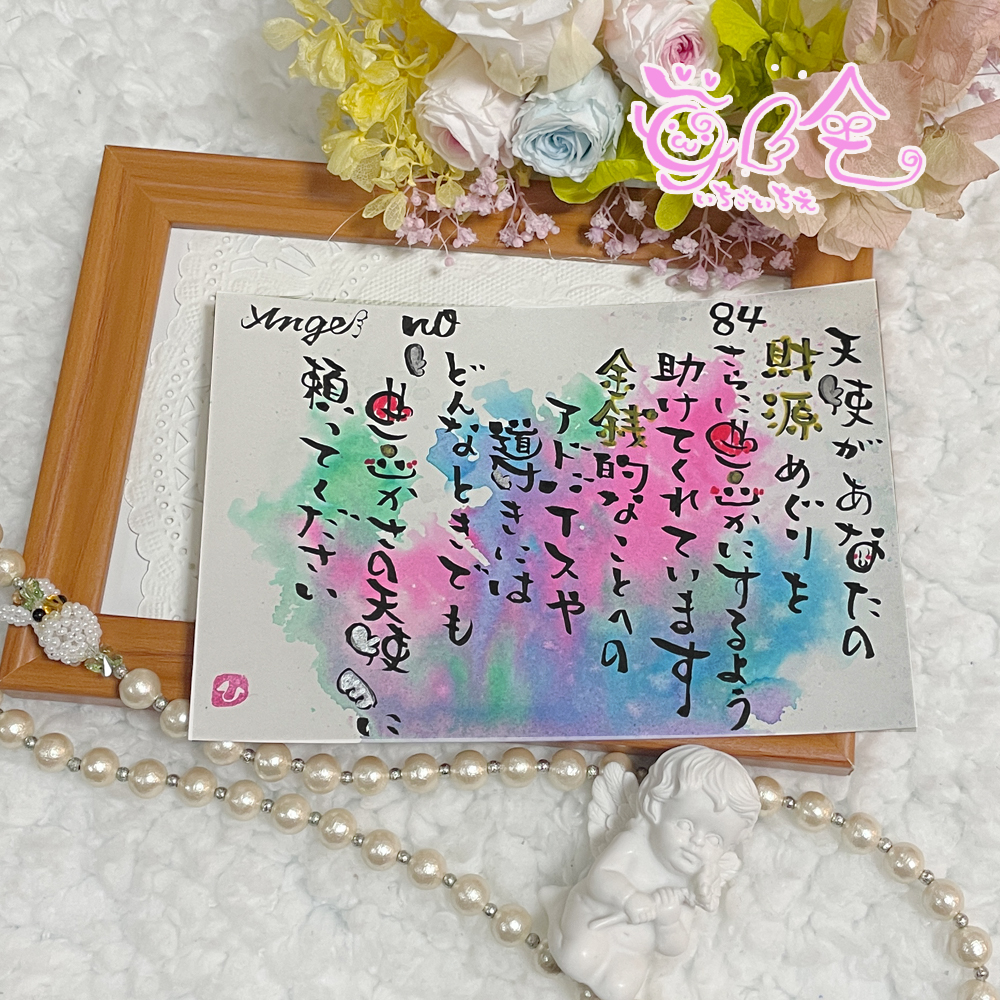 Angel no 84
天使があなたの
財源めぐりを
さらに豊かにするよう
助けてくれています
金銭的なことへの
アドバイスや
導きには
どんなときでも
豊かさの天使に
頼ってください
いちごいちえ